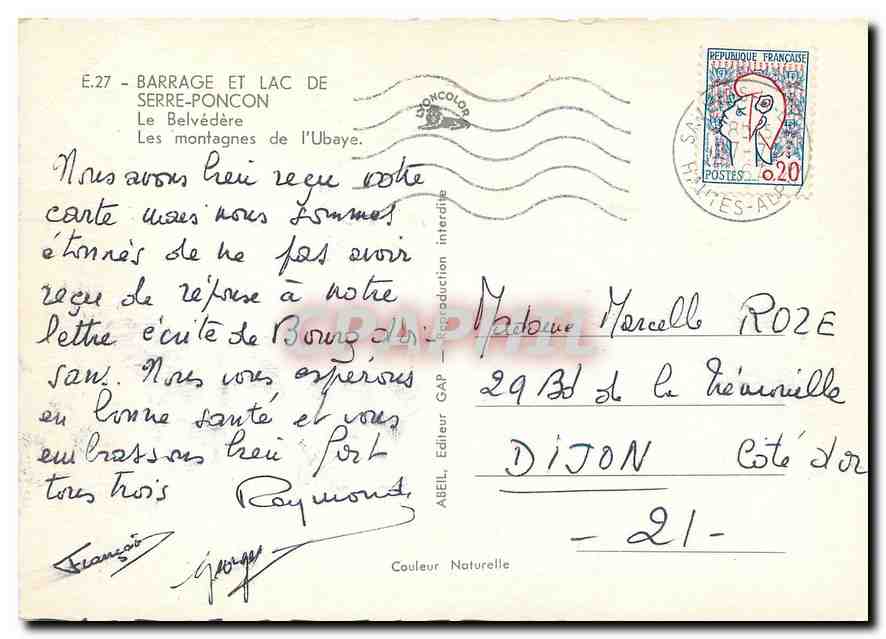 E.27 - BARRAGE ET LAC DE
SERRE-PONCON
Le Belvédère
Les montagnes de l'Ubaye.
LYONCOLOR
REPUBLIQUE FRANÇAISE
POSTES 0.20
HAUTES-ALPES
Nous avons bien reçu votre
carte mais nous sommes
étonnés de ne pas avoir
reçu de réponse à notre
lettre écrite de Bourg d'oi-
sans. Nous vous espérons
en bonne santé et vous
embrassons bien fort
tous trois Raymond
François
Georges
ABEIL, Editeur GAP - Reproduction interdite
CPAPHIL
Madame Marcelle ROZE
29 Bd de la Trémouille
DIJON Côte d'or
- 21 -
Couleur Naturelle